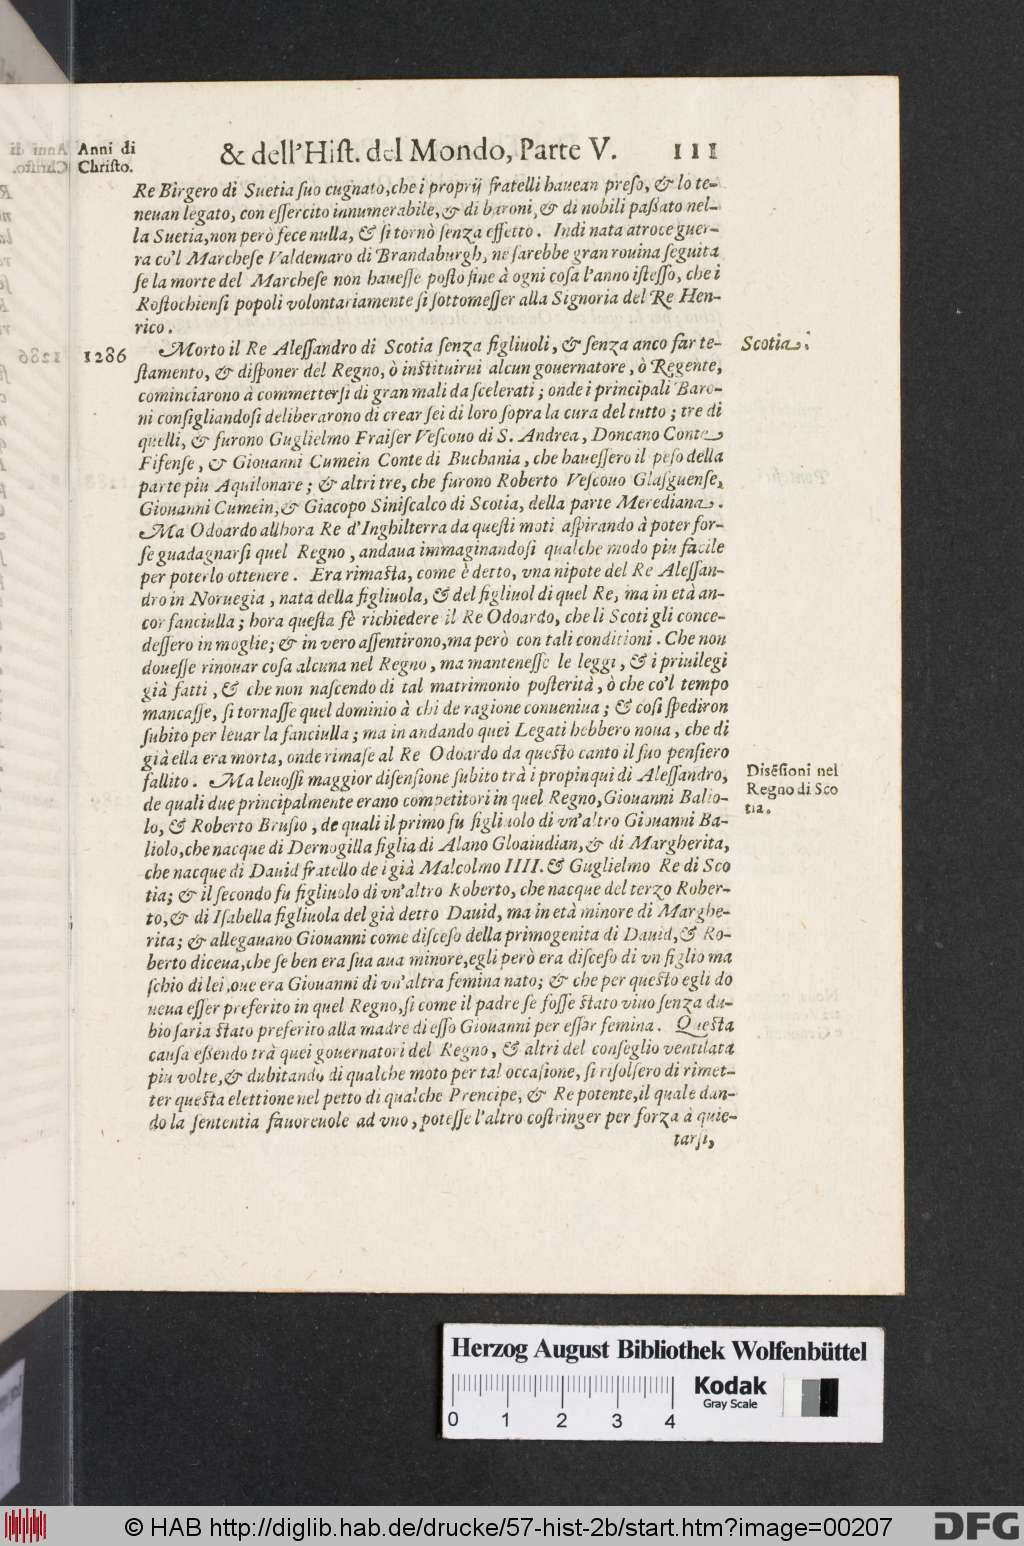 Anni di
Christo.
& dell'Hist. del Mondo, Parte V. 111
Re Birgero di Suetia suo cugnato, che i proprij fratelli hauean preso, & lo te-
neuan legato, con essercito innumerabile, & di baroni, & di nobili passato nel-
la Suetia, non però fece nulla, & si tornò senza effetto. Indi nata atroce guer-
ra co'l Marchese Valdemaro di Brandaburgh, ne sarebbe gran rouina seguita
se la morte del Marchese non hauesse posto fine à ogni cosa l'anno istesso, che i
Rostochiensi popoli volontariamente si sottomesser alla Signoria del Re Hen-
rico.
1286
Morto il Re Alessandro di Scotia senza figliuoli, & senza anco far te-
Scotia.
stamento, & disponer del Regno, ò instituirui alcun gouernatore, ò Regente,
cominciarono à commettersi di gran mali da scelerati; onde i principali Baro-
ni consigliandosi deliberarono di crear sei di loro sopra la cura del tutto; tre di
quelli, & furono Guglielmo Fraiser Vescouo di S. Andrea, Doncano Conte
Fifense, & Giouanni Cumein Conte di Buchania, che hauessero il peso della
parte piu Aquilonare; & altri tre, che furono Roberto Vescouo Glasguense,
Giouanni Cumein, & Giacopo Siniscalco di Scotia, della parte Merediana.
Ma Odoardo allhora Re d'Inghilterra da questi moti aspirando à poter for-
se guadagnarsi quel Regno, andaua immaginandosi qualche modo piu facile
per poterlo ottenere. Era rimasta, come è detto, vna nipote del Re Alessan-
dro in Noruegia, nata della figliuola, & del figliuol di quel Re, ma in età an-
cor fanciulla; hora questa fè richiedere il Re Odoardo, che li Scoti gli conce-
dessero in moglie; & in vero assentirono, ma però con tali conditioni. Che non
douesse rinouar cosa alcuna nel Regno, ma mantenesse le leggi, & i priuilegi
già fatti, & che non nascendo di tal matrimonio posterità, ò che co'l tempo
mancasse, si tornasse quel dominio à chi de ragione conueniua; & cosi spediron
subito per leuar la fanciulla; ma in andando quei Legati hebbero noua, che di
già ella era morta, onde rimase al Re Odoardo da questo canto il suo pensiero
fallito. Ma leuossi maggior disensione subito trà i propinqui di Alessandro,
Disẽsioni nel
Regno di Sco
tia.
de quali due principalmente erano competitori in quel Regno, Giouanni Balio-
lo, & Roberto Brusio, de quali il primo fu figliuolo di vn'altro Giouanni Ba-
liolo, che nacque di Dernogilla figlia di Alano Gloaiudian, & di Margherita,
che nacque di Dauid fratello de i già Malcolmo IIII. & Guglielmo Re di Sco
tia; & il secondo fu figliuolo di vn'altro Roberto, che nacque del terzo Rober-
to, & di Isabella figliuola del già detto Dauid, ma in età minore di Marghe-
rita; & allegauano Giouanni come disceso della primogenita di Dauid, & Ro-
berto diceua, che se ben era sua aua minore, egli però era disceso di vn figlio ma
schio di lei, oue era Giouanni di vn'altra femina nato; & che per questo egli do
ueua esser preferito in quel Regno, si come il padre se fosse stato viuo senza du-
bio saria stato preferito alla madre di esso Giouanni per esser femina. Questa
causa essendo trà quei gouernatori del Regno, & altri del conseglio ventilata
piu volte, & dubitando di qualche moto per tal occasione, si risolsero di rimet-
ter questa elettione nel petto di qualche Prencipe, & Re potente, il quale dan-
do la sententia fauoreuole ad vno, potesse l'altro costringer per forza à quie-
tarsi,
Herzog August Bibliothek Wolfenbüttel
0 1 2 3 4
Kodak
Gray Scale
© HAB http://diglib.hab.de/drucke/57-hist-2b/start.htm?image=00207
DFG